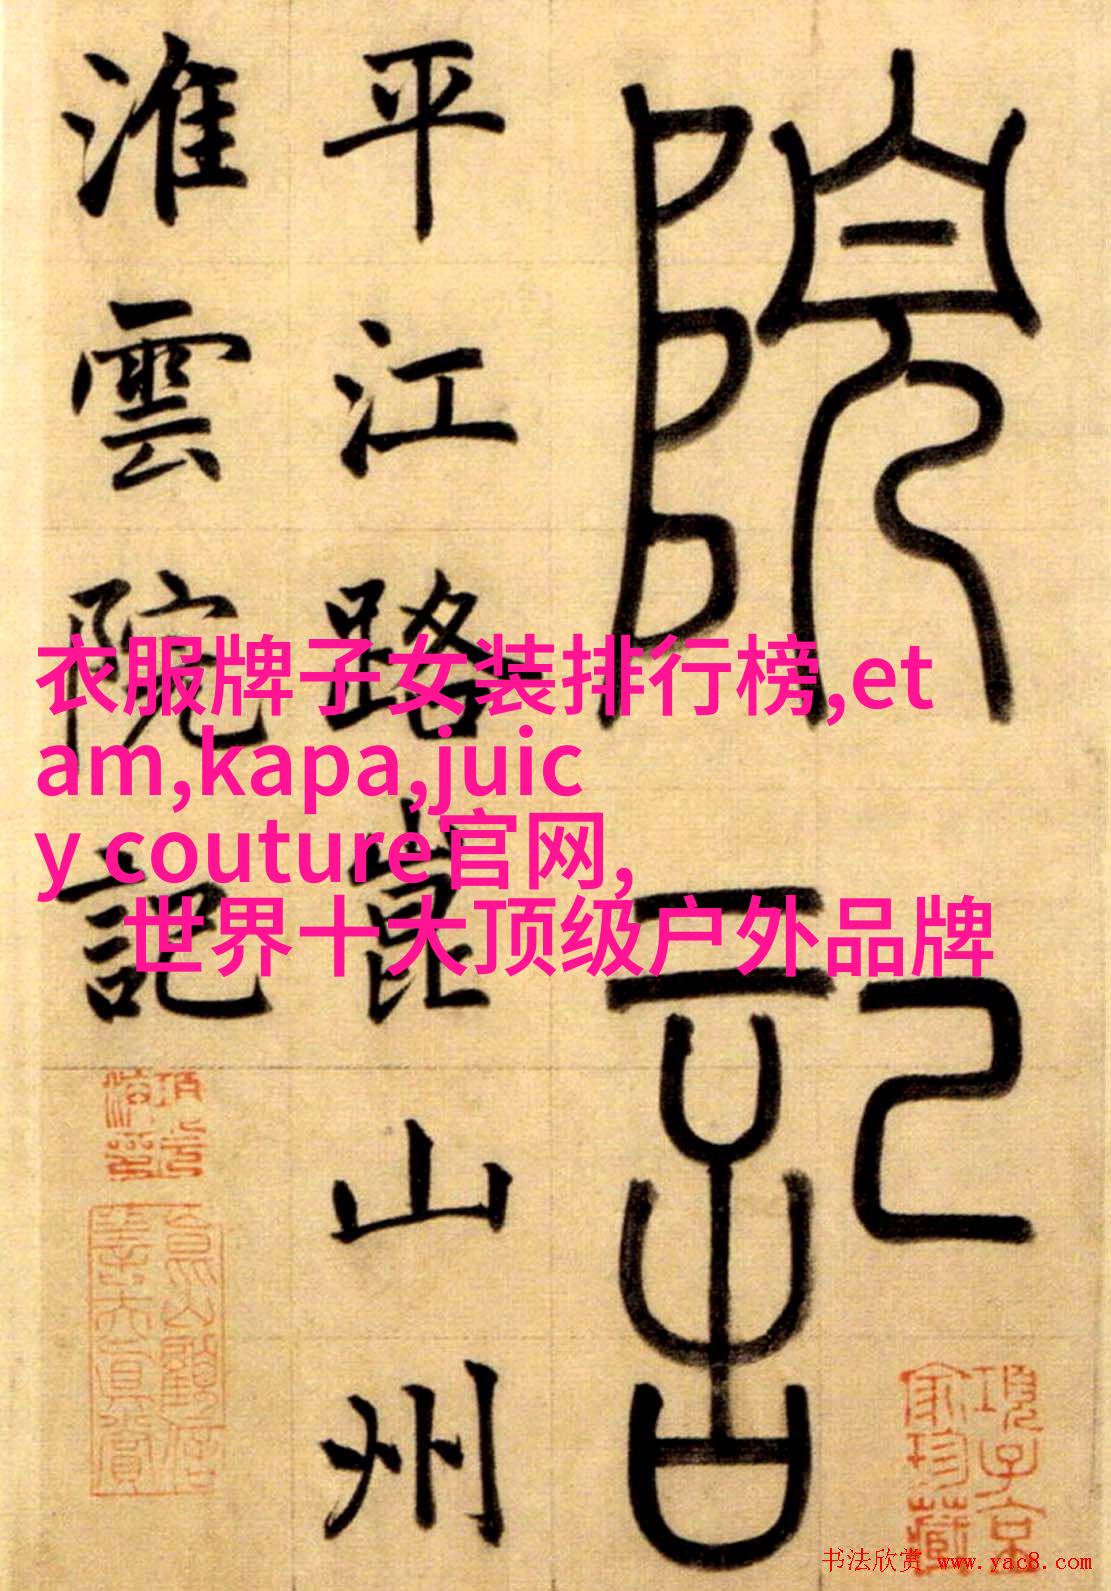 院記
平江路崑山州
淮雲院記
衣服牌子女装排行榜,et
am,kapa,juic
y couture官网,
世界十大顶级户外品牌
項子京
家珍藏
书法欣赏 www.yac8.com